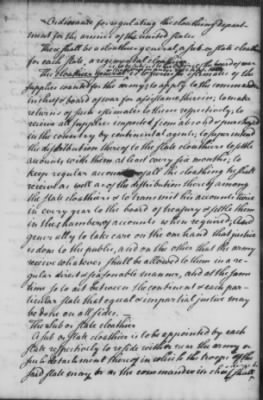 Ordinance for regulating the cloathing depart-
ment for the armies of the united states.
There shall be a cloathier general, a sub or state cloathier
for each state, a regimental cloathier
The cloathier general is to furnish estimates of the
supplies wanted for the army; to apply to the commander
in chief & board of war for assistance therein; to make
returns of such estimates to them respectively; to
receive all supplies imported from abroad or purchased
in the country by continental agents; to superintend
the distribution thereof to the state cloathiers & settle
accounts with them at least every six months; to
keep regular accounts of all the cloathing he shall
receive as well as of the distribution thereof among
the state cloathiers & to transmit his accounts once
in every year to the board of treasury & settle them
in the chamber of accounts when required; and
generally to take care on the one hand that justice
is done to the public, and on the other that the army
receive whatever shall be allowed to them in a re-
gular direct & seasonable manner, and at the same
time so to act between the continent & each par-
ticular state that equal & impartial justice may
be done on all sides.
The sub or state cloathier
A sub or state cloathier is to be appointed by each
state respectively to reside with or near the army or
detachment thereof in which the troops of the
said state may be as the commander in chief shall